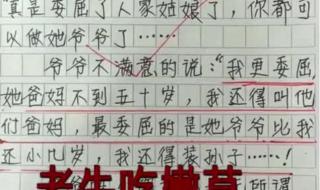 真是委屈了人家姑娘了，你都可
以做她爷爷了……
爷爷不满意的说：“我更委屈，
她爸妈不到五十岁，我还得叫他
们爸妈，最委屈的是她爷爷比我
还小几岁，我还得装孙子……
所谓
老牛吃嫩草